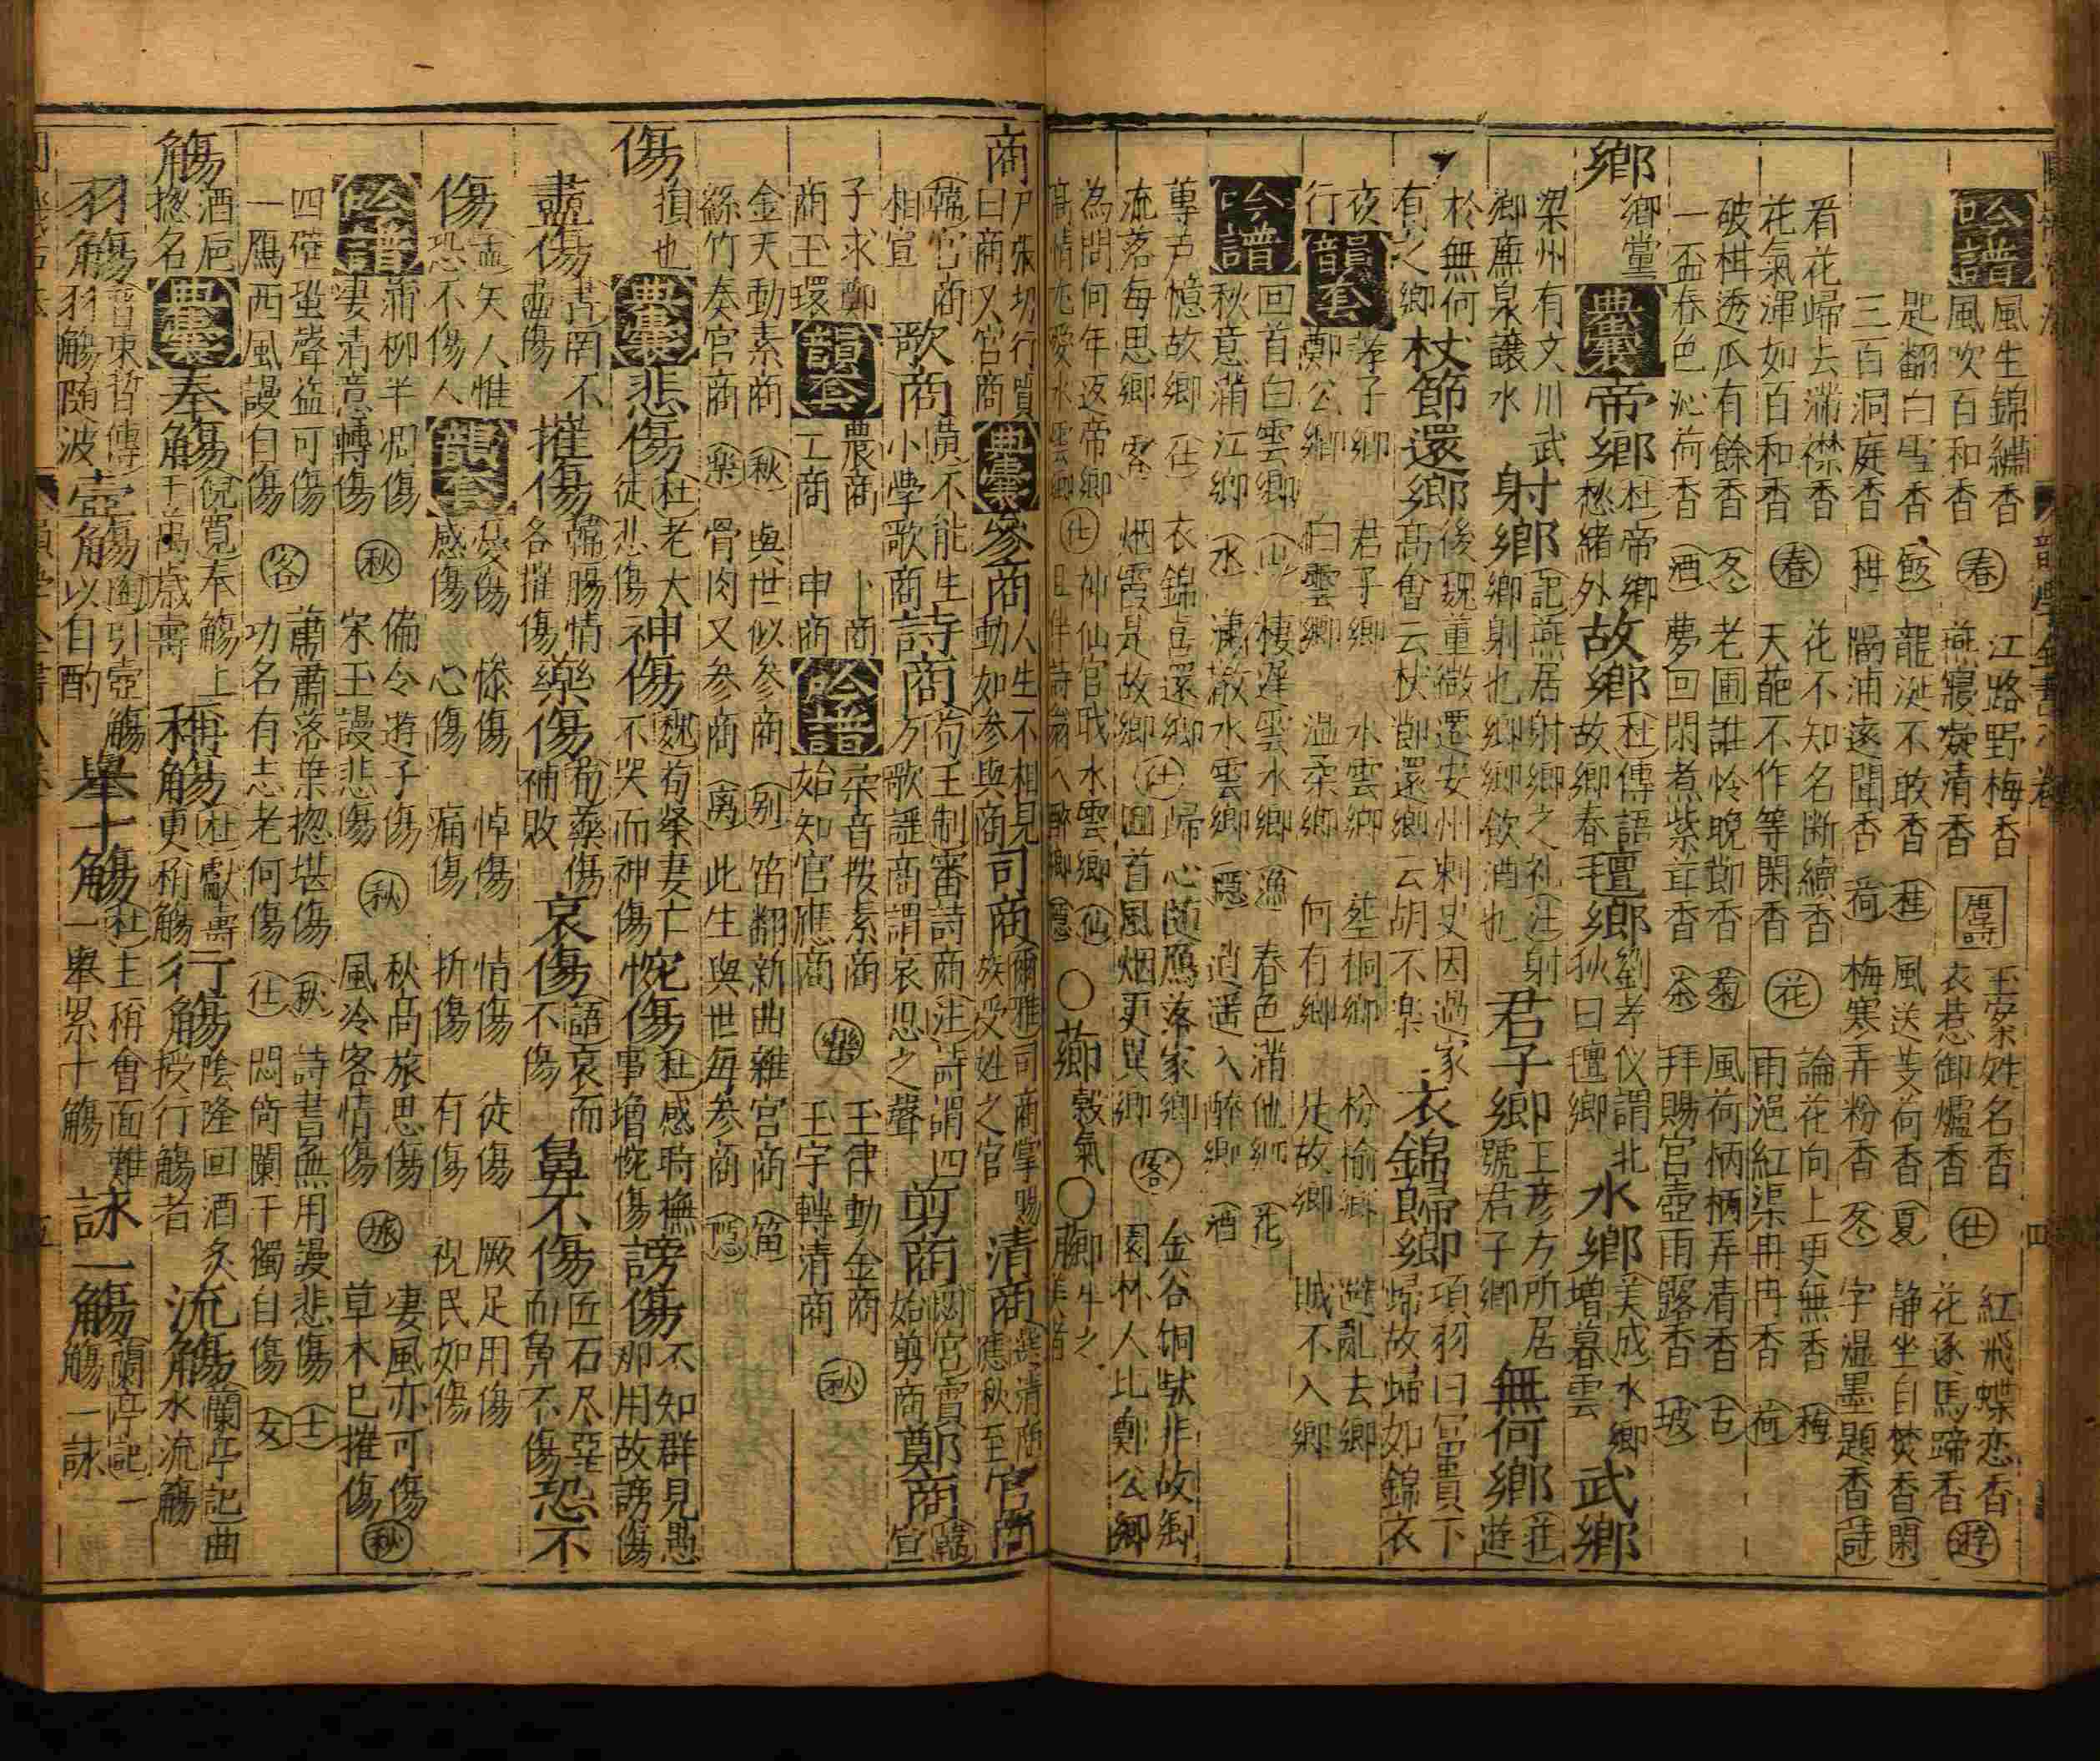 吟譜
風生錦繡香
風吹百和香 春
江路野梅香
燕寢凝清香
唐詩
玉案姓名香
衣惹御爐香 仕
紅飛蝶恋香
花逐馬蹄香 游
匙翻白雪香
三百洞庭香
龍涎不敢香
隔浦遠聞香 荷
風送芰荷香 夏
梅寒弄粉香 冬
静坐自焚香 閑
字湿墨題香 詩
看花歸去滿襟香
花氣渾如百和香 春
花不知名断續香
天葩不作等閑香 花
論花向上更無香 梅
雨浥紅渠冉冉香 荷
破柑透瓜有餘香 冬
一盃春色沁荷香 酒
老圃誰怜晚節香 菊
夢回閑煮紫茸香 茶
風荷柄柄弄清香
拜賜宮壺雨露香
鄉 鄉堂
典囊
帝鄉 杜帝鄉愁緒外
故鄉 杜傳語故鄉春
氊鄉 劉孝仪謂北狄曰氊鄉
水鄉 美成水鄉增暮雲
武鄉
梁州有文川武鄉廉泉讓水
射鄉 記燕居射鄉之礼注射鄉射也鄉鄉飲酒也
君子鄉 王彦方所居號君子鄉
無何鄉 莊遊於無何有之鄉
杖節還鄉 後魏董徵遷安州刺史因過家高會云杖節還鄉云胡不楽
衣錦歸鄉 項羽曰冨貴不歸故鄉如錦衣夜行
韻套
孝子鄉 鄭公鄉
君子鄉 白雲鄉
水雲鄉 温柔鄉
桐鄉 何有鄉
枌榆鄉 是故鄉
避亂去鄉 城不入鄉
吟譜
回首白雲鄉
秋意滿江鄉
棲遲雲水鄉
瀟散水雲鄉 隠
春色滿仙鄉 花
逍遥入醉鄉 酒
蓴芦憶故鄉 仕
流落每思鄉 客
衣錦當還鄉 仕
烟霞是故鄉
歸心随鴈落家鄉
回首風烟更異鄉 客
金谷銅駄非故鄉
園林人比鄭公鄉
為問何年返帝鄉
高情尤愛水雲鄉 仕
神仙官職水雲鄉 仙
○薌 穀氣 ○膷 牛之
商 又宮商
典囊
參商 人生不相見動如参與商
司商 爾雅司商掌賜族受姓之官
清商 應秋至
宮商
韓宮商相宣
歌商 黄不能生小學歌商
詩商 荀王制審詩商注詩謂四方歌謡商謂哀思之聲
剪商 閟宮實始剪商
鄭商 韓宣子求鄭商玉環
韻套
農商 工商
卜商 申商
吟譜
朱音揆素商
始知官應商 樂
玉律動金商
玉宇轉清商 秋
金天動素商 秋
絲竹奏宮商 樂
與世似参商 别
骨肉又参商 离
笛翻新曲雜宮商 笛
此生與世每参商 隠
傷 損也
典囊
悲傷 杜老大徒悲傷
神傷 魏荀粲妻亡不哭而神傷
惋傷 杜感時撫事增惋傷
謗傷 不知群見愚那用故謗傷
盡傷 書罔不盡傷
摧傷 韓腸情各摧傷
藥傷 荀藥傷補敗
哀傷 語哀而不傷
鼻不傷 匠石尽堊而鼻不傷
恐不傷 孟矢人惟恐不傷人
韻套
憂傷 感傷
慘傷 心傷
悼傷 痛傷
情傷 折傷
徒傷 有傷
厥足用傷 視民如傷
吟譜
蒲柳半凋傷
凄清意轉傷 秋
備令遊子傷
宋玉謾悲傷 秋
秋高旅思傷
風冷客情傷 旅
凄風亦可傷
草木已摧傷 秋
四碪蛩聲盗可傷
一鴈西風謾自傷 客
蕭蕭落葉揔堪傷 秋
功名有志老何傷 仕
詩書無用謾悲傷 士
悶倚闌干獨自傷 女
觴 酒卮揔名
典囊
奉觴 倪寛奉觴上千萬歳壽
稱觴 杜獻壽更稱觴
行觴 陰隆回酒炙授行觴者
流觴 蘭亭記曲水流觴
羽觴 晋束晳傳羽觴随波
壺觴 陶引壺觴以自酌
舉十觴 杜主稱會面難一舉累十觴
詠一觴 蘭亭記一觴一詠